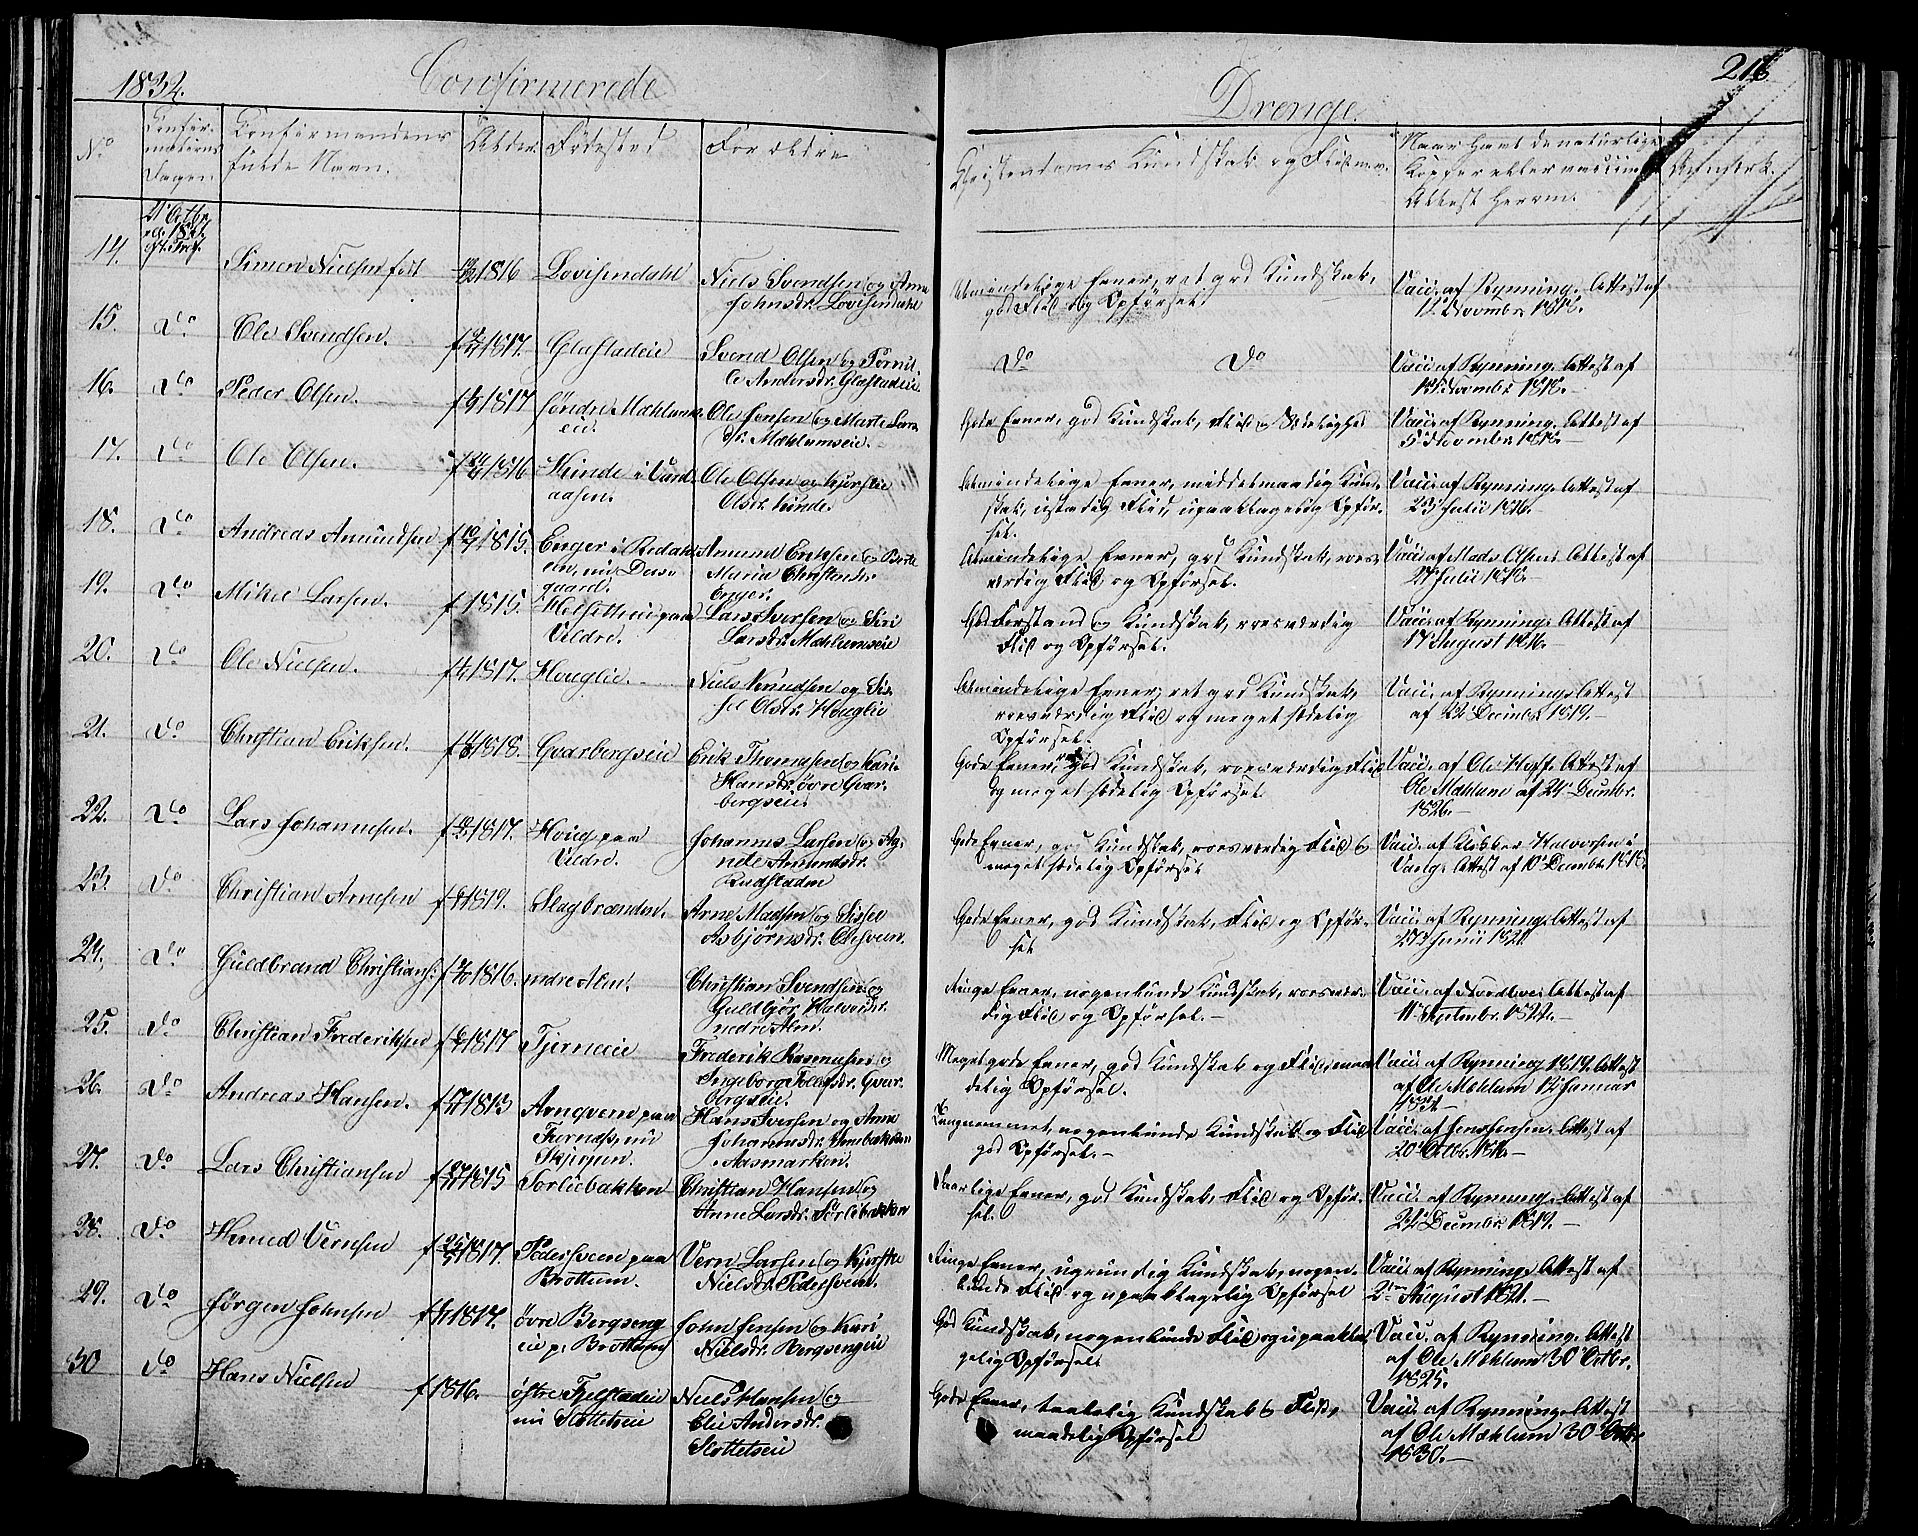 1832.
Confirmerede
Drenge.
216
No
Confirmations Dagen
Confirmandens fulde Navn.
Alder
Fødested
Forældre
Christendoms Kundskab og Flid m.v.
Naar havt de naturlige
Kopper eller vaccineret
Attest herom.
Anmærk.
14.
Simen Nielsen født
1816
Lovisendahl
Niels Svendsen og Anne
Johnsdr. Lovisendahl
Almindelige Evner, ret god Kundskab,
god Flid og Opførsel
Vacc. af Rynning. Attest af
12 Novembr 1818.
15.
Do
Ole Svendsen.
1817.
Glæstadeie
Svend Olsen og Pernil-
le Andersdr. Glæstadeie
Do
Do
Vacc. af Rynning. Attest af
Novembr 1818.
16.
Do
Peder Olsen.
1817
søndre Mæhlums
eie.
Ole Jensen og Marte Lars
dr. Mæhlumseie.
Gode Evner, god Kundskab, Flid og Sædelighed
Vacc. af Rynning. Attest af
5 Novembr 1818.
17.
Do
Ole Olsen.
1816
Hinde i Vard
aasen.
Ole Olsen og Kjersti
Olsdr. Hinde.
Almindelige Evner, middelmaadig Kund-
skab, ustadig Flid, upaaklagelig Opfør-
sel.
Vacc. af Rynning. Attest af
23 Julii 1816.
18.
Do
Andreas Amundsen
1815.
Enger i Redahls
Amund Eriksen og Berte
Maria Christensdr.
Enger.
Almindelige Evner, god Kundskab, roes-
værdig Flid og Opførsel.
Vacc. af Mads Olsen. Attest af
27 Julii 1818.
19.
Do
Mikel Larsen.
f 1815.
Helsetheie paa
Veldre.
Lars Iversen og Siri
Larsdr. Mæhlumseie
God Forstand og Kundskab, roesværdig
Flid og Opførsel.
Vacc. af Rynning. Attest af
17 August 1816.
20.
Do
Ole Nielsen.
1817.
Houglie.
Niels Knudsen og Sis-
sel Olsdr. Houglie
Almindelige Evner, ret god Kundskab,
roesværdig Flid og meget sædelig
Opførsel.
Vacc. af Rynning. Attest
af 22 Decembr. 1819.
21.
Do
Christian Eriksen.
1818.
Gvarbergseie
Erik Thomassen og Kari
Hansdr. øvre Gvar-
bergseie
Gode Evner, god Kundskab, roesværdig Flid
og meget sædelig Opførsel
Vacc. af Ole Hoff. Attest af
Ole Mæhlum af 24 Decembr.
1826.
22.
Do
Lars Johannesen.
1817.
Houg paa
Veldre.
Johannes Larsen og Ag-
nete Amundsdr.
Rudstaden
Gode Evner, god Kundskab, roesværdig Flid og
meget sædelig Opførsel
Vacc. af Klokker Halvorsen i
Vang. Attest af 10 Decembr 1818
23.
Do
Christian Arnesen
1819.
Slagbrænden.
Arne Madsen og Sissel
Asbjørnsdr. Olesveen.
Gode Evner, god Kundskab, Flid og Opfør-
sel
Vacc. af Rynning. Attest af
27 Junii 1821.
24.
Do
Guldbrand Christians.
1816.
nedre Alm.
Christian Svendsen og
Guldbjør Halvorsdr.
nedre Alm.
Ringe Evner, nogenlunde Kundskab, roesvær-
dig Flid og Opførsel.
Vacc. af Nordlie. Attest af
11 Septembr. 1822.
25.
Do
Christian Frederiksen
1817
Tjerneeie
Frederik Rasmussen og
Ingeborg Tollefsdr. Gvar-
bergseie.
Meget gode Evner, god Kundskab og Flid, maa-
delig Opførsel.
Vacc. af Rynning 1819. Attest
af Ole Mæhlum 12 Januar
26.
Do
Andreas Hansen.
1813
Arnqvern paa
Furnæs, nu
Skjejen.
Hans Iversen og Anne
Johannesdr. Arnebakken
Aasmarken.
Tungnemmet, nogenlunde Kundskab og Flid
god Opførsel.
Vacc. af Jens Jensen. Attest af
20 Octbr.
27.
Do
Lars Christiansen
1815
Sorlibakken
Christian Hansen og
Anne Larsdr. Sørlibakken
Daarlige Evner, god Kundskab, Flid og Opfør-
sel.
Vacc. af Rynning. Attest af
22 Decembr 1819.
28.
Do
Hemed Vernsen
1817.
Pedersveen paa
Brøttum.
Vern Larsen og Kjersti
Nielsdr. Pedersveen.
Ringe Evner, ugrundig Kundskab, nogen-
lunde Flid og upaaklagelig Opførsel
Vacc. af Rynning. Attest af
2 August 1821.
29.
Do
Jørgen Johnsen
1817.
øvre Bergseng
eie p. Brøttum
John Jensen og Kari
Nielsdr. Bergsengeie
God Kundskab, nogenlunde Flid og upaakla-
gelig Opførsel
Vacc. af Rynning. Attest
af Ole Mæhlum 30 Octbr.
1825.
30
Do
Hans Nielsen
f 1816.
østre Fjelstadeie
nu Slottetseie
Niels Hansen og
Eli Andersdr.
Slottetseie
Gode Evner, taalelig Kundskab og Flid,
maadelig Opførsel
Vacc. af Rynning. Attest
af Ole Mæhlum 30 Octbr
1830.